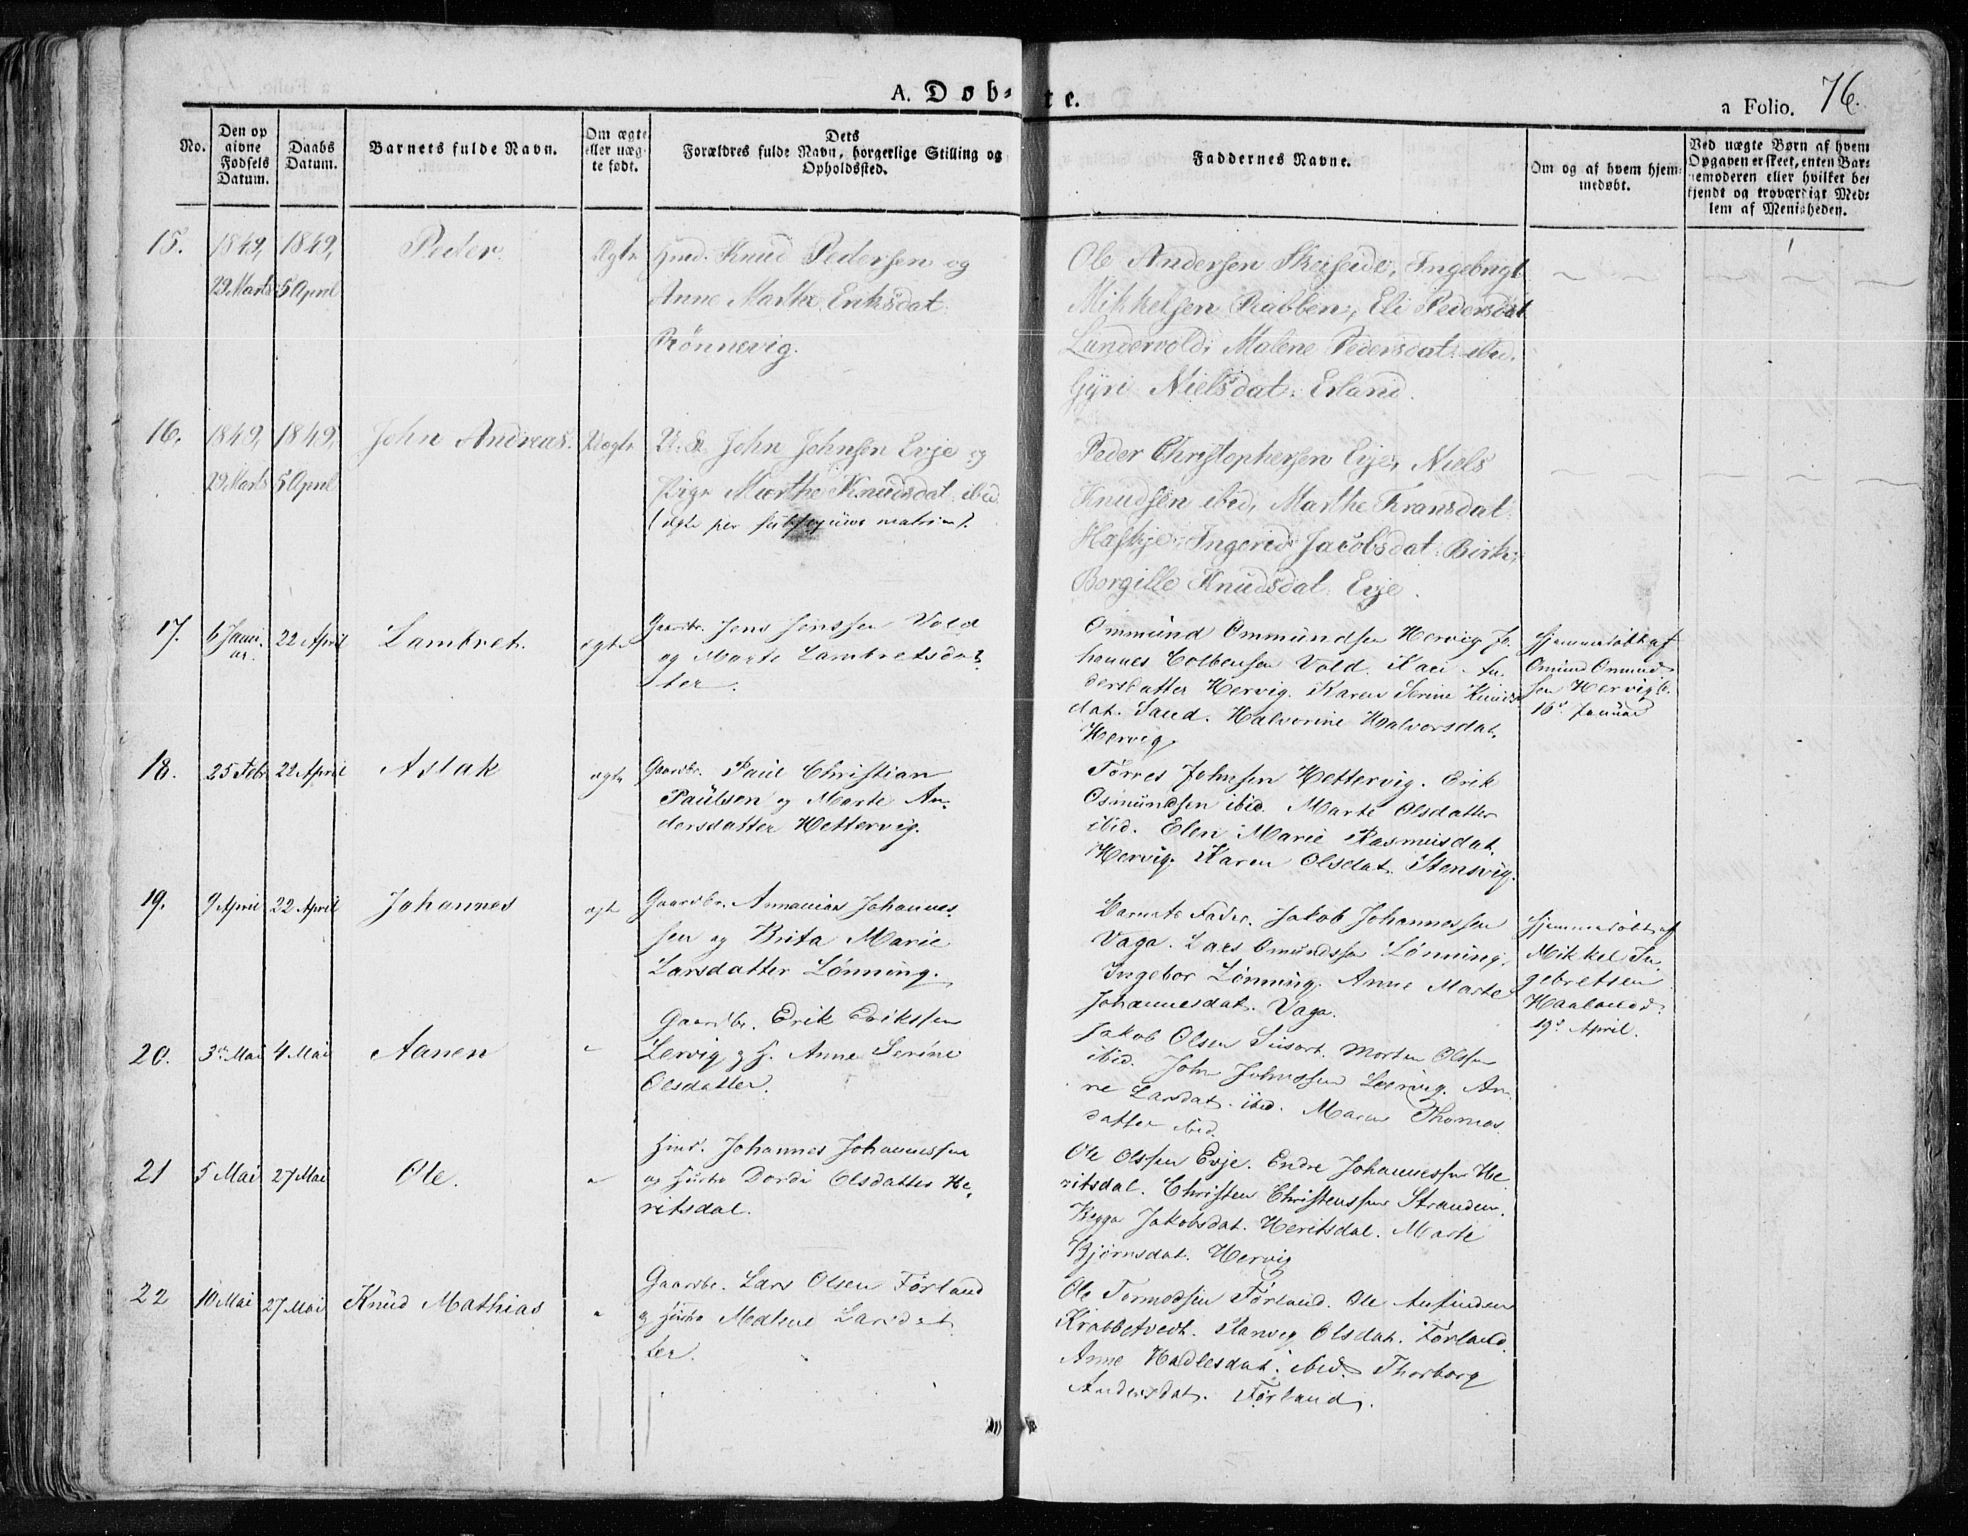 A. Døb- te.
a Folio. 76.
No.
Den op
givne
Fødsels
Datum.
Daabs
Datum.
Barnets fulde Navn.
Om ægte
eller uæg-
te født.
Dets
Forældres fulde Navn, borgerlige Stilling og
Opholdssted.
Faddernes Navne.
Om og af hvem hjem-
medøbt.
Ved uægte Børn af hvem
Opgaven er skeet, enten Bar-
nemoderen eller hvilket be-
kjendt og troværdigt Med-
lem af Menigheden.
15. 1849, 1849, Peder. Ægte Huusmd. Knud Pedersen og
29 Marts 5 April Anne Marthe Eriksdat.
Rönnevig.
Ole Andersen Skeiseide, Ingebrigt
Mikkelsen Rabben, Eli Pedersdat
Lundervold, Malene Pedersdat. ibid.
Gyri Nielsdat. Erland.
16. 1849, 1849, John Andreas. Uægte U. K. John Johnsen Evje og
29 Marts 5 April Pige Marthe Knudsdat. ibid.
(ægte per subsequens matrim).
Peder Christophersen Evje, Niels
Knudsen ibid, Marthe Fransdat.
Ingerid Jacobsdat. Birk,
Borgille Knudsdat. Evje.
17. 6 Janu- 22 April Lambret. ægte Gaardbr. Jens Jenssen Vold
ar. og Marte Lambretsdat-
ter.
Ommund Ommundsen Hervig. Jo-
hannes Colbensen Vold. Kari An-
dersdatter Hervig. Karen Serine Knuds-
dat. Sand. Halvorine Halvorsdat.
Hervig.
Hjemmedøbt af
Omund Omund-
sen Hervig d.
16d Januar
18. 25 Febr 22 April Aslak ægte Gaardbr. Paul Christian
Paulsen og Marte An-
dersdatter Hettervig.
Torres Johnsen Hettervig. Erik
Osmundsen ibid. Marte Olsdatter
ibid. Elen Marie Rasmusdat.
Hervig. Karen Olsdat. Stensvig.
19. 9 April 22 April Johannes ægte Gaardbr. Annanias Johannes-
sen og Brita Marie
Larsdatter Lönning.
Barnets Fader. Jakob Johannessen
Vaga. Lars Omundssen Lönning.
Ingebor Lönning. Anne Marte
Johannesdat. Vaga.
Hjemmedøbt af
Mikkel In-
gebretsen
Haaland
19d April.
20. 3d Mai 4 Mai Aanen " Gaardbr. Erik Erikssen
Lervig og H. Anne Serine
Olsdatter.
Jakob Olsen Morten Olsen
ibid. John Johnssen Leervig. An-
ne Larsdat. ibid. Maren Thomas-
datter ibid.
21 5 Mai 27 Mai Ole. " Huusmd. Johannes Johannessen
og Hustro Dordi Olsdatter He-
ritsdal.
Ole Olssen Evje. Endre Johannessen He-
ritsdal. Christen Christenssen Stranden.
Jakobsdat. Heritsdal. Marte
Bjørnsdat. Hervig
22 10 Mai 27 Mai Knud Mathias " Gaardbr. Lars Olsen Førland
og Hustro Malene Larsdat-
ter.
Ole Tormodsen Førland. Ole Anfindsen
Krabbetvedt. Ranveig Olsdat. Førland.
Anne Hadlesdat. ibid. Thorborg
Andersdat. Førland.